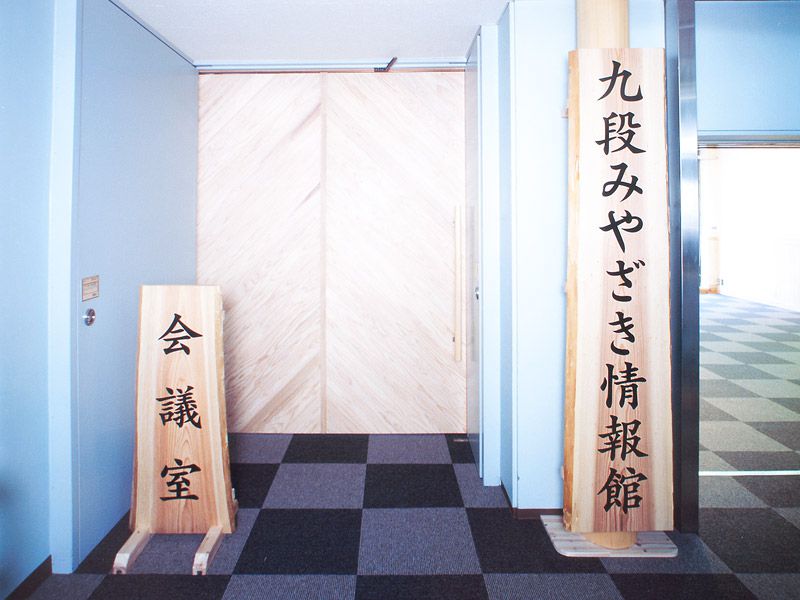 九段みやざき情報館
会議室